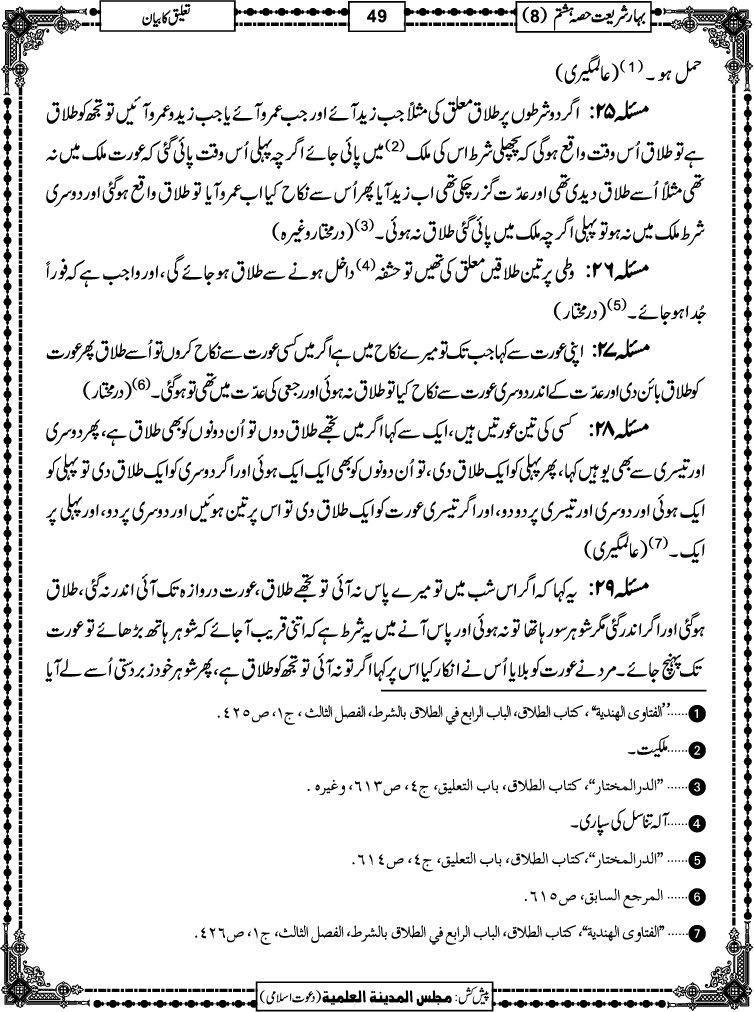 بہارِ شریعت حصہ ہشتم (8)
49
تعلیق کا بیان
حمل ہو۔(1) (عالمگیری)
مسئلہ ۲۵: اگر دو شرطوں پر طلاق معلق کی مثلاً جب زید آئے اور جب عمرو آئے یا جب زید و عمرو آئیں تو تجھ کو طلاق
ہے تو طلاق اُس وقت واقع ہوگی کہ پچھلی شرط اس کی ملک(2) میں پائی جائے اگرچہ پہلی اُس وقت پائی گئی کہ عورت ملک میں نہ
تھی مثلاً اُسے طلاق دیدی تھی اور عدّت گزر چکی تھی اب زید آیا پھر اُس سے نکاح کیا اب عمرو آیا تو طلاق واقع ہوگئی اور دوسری
شرط ملک میں نہ ہو تو پہلی اگرچہ ملک میں پائی گئی طلاق نہ ہوئی۔(3) (درمختار وغیرہ)
مسئلہ ۲۶: وطی پر تین طلاقیں معلق کی تھیں تو حشفہ(4) داخل ہونے سے طلاق ہوجائے گی، اور واجب ہے کہ فوراً
جُدا ہوجائے۔(5) (درمختار)
مسئلہ ۲۷: اپنی عورت سے کہا جب تک تو میرے نکاح میں ہے اگر میں کسی عورت سے نکاح کروں تو اُسے طلاق پھر عورت
کو طلاق بائن دی اور عدّت کے اندر دوسری عورت سے نکاح کیا تو طلاق نہ ہوئی اور رجعی کی عدّت میں تھی تو ہوگئی۔(6) (درمختار)
مسئلہ ۲۸: کسی کی تین عورتیں ہیں، ایک سے کہا اگر میں تجھے طلاق دوں تو اُن دونوں کو بھی طلاق ہے، پھر دوسری
اور تیسری سے بھی یوہیں کہا، پھر پہلی کو ایک طلاق دی، تو اُن دونوں کو بھی ایک ایک ہوئی اور اگر دوسری کو ایک طلاق دی تو پہلی کو
ایک ہوئی اور دوسری اور تیسری پر دو دو، اور اگر تیسری عورت کو ایک طلاق دی تو اس پر تین ہوئیں اور دوسری پر دو، اور پہلی پر
ایک۔(7) (عالمگیری)
مسئلہ ۲۹: یہ کہا کہ اگر اس شب میں تو میرے پاس نہ آئی تو تجھے طلاق، عورت دروازہ تک آئی اندر نہ گئی، طلاق
ہوگئی اور اگر اندر گئی مگر شوہر سو رہا تھا تو نہ ہوئی اور پاس آنے میں یہ شرط ہے کہ اتنی قریب آجائے کہ شوہر ہاتھ بڑھائے تو عورت
تک پہنچ جائے۔ مرد نے عورت کو بلایا اُس نے انکار کیا اس پر کہا اگر تو نہ آئی تو تجھ کو طلاق ہے، پھر شوہر خود زبردستی اُسے لے آیا
1......’’الفتاوى الهندية‘‘، كتاب الطلاق، الباب الرابع في الطلاق بالشرط، الفصل الثالث، ج١، ص٤٢٥.
2......ملکیت۔
3......’’الدرالمختار‘‘، كتاب الطلاق، باب التعليق، ج٤، ص٦١٣، وغيره.
4......آلہ تناسل کی سپاری۔
5......’’الدرالمختار‘‘، كتاب الطلاق، باب التعليق، ج٤، ص٦١٤.
6......المرجع السابق، ص٦١٥.
7......’’الفتاوى الهندية‘‘، كتاب الطلاق، الباب الرابع في الطلاق بالشرط، الفصل الثالث، ج١، ص٤٢٦.
پیش کش: مجلس المدینة العلمیة (دعوت اسلامی)